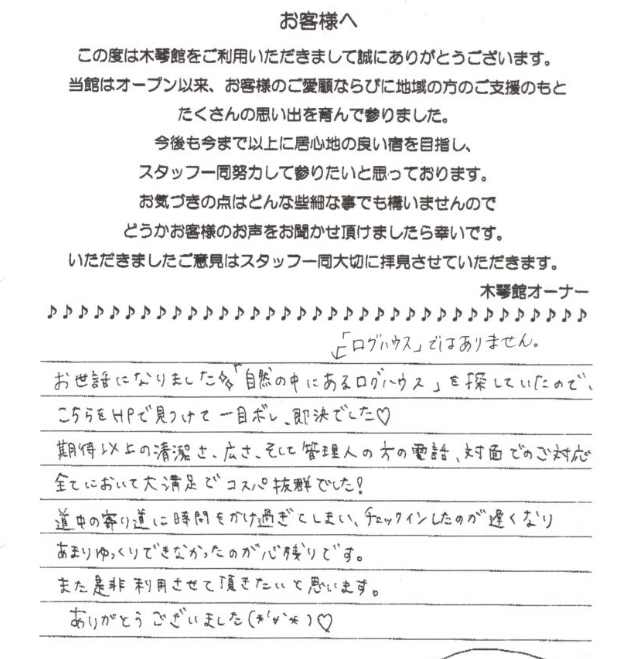 お客様へ
この度は木琴館をご利用いただきまして誠にありがとうございます。
当館はオープン以来、お客様のご愛顧ならびに地域の方のご支援のもと
たくさんの思い出を育んで参りました。
今後も今まで以上に居心地の良い宿を目指し、
スタッフ一同努力して参りたいと思っております。
お気づきの点はどんな些細な事でも構いませんので
どうかお客様のお声をお聞かせ頂けましたら幸いです。
いただきましたご意見はスタッフ一同大切に拝見させていただきます。
木琴館オーナー
♪♪♪♪♪♪♪♪♪♪♪♪♪♪♪♪♪♪♪♪♪♪♪♪♪♪♪♪♪♪♪♪♪♪♪
「ログハウス」ではありません。
お世話になりました 「自然の中にあるログハウス」を探していたので、
こちらをHPで見つけて一目ボレ、即決でした♡
期待以上の清潔さ、広さ、そして管理人の方の電話、対面でのご対応
全てにおいて大満足でコスパ抜群でした!
道中の寄り道に時間をかけ過ぎてしまい、チェックインしたのが遅くなり
あまりゆっくりできなかったのが心残りです。
また是非利用させて頂きたいと思います。
ありがとうございました(*'∨'*)♡